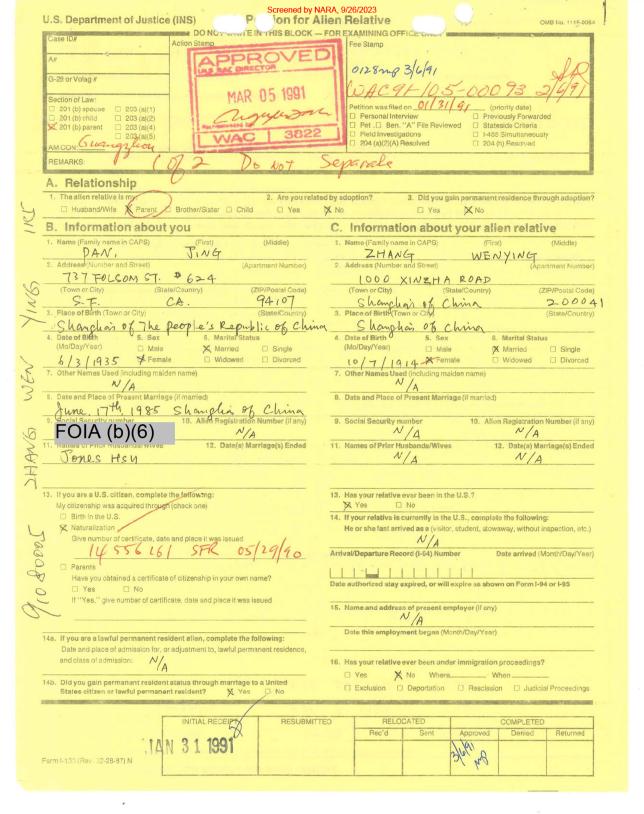 Screened by NARA, 9/26/2023
U.S. Department of Justice (INS) Petition for Alien Relative OMB No. 1115-0054
DO NOT WRITE IN THIS BLOCK — FOR EXAMINING OFFICE ONLY
Case ID#
Action Stamp
Fee Stamp
A#
G-28 or Volag #
APPROVED
DIRECTOR
MAR 05 1991
WAC 3822
0128mp 3/6/91
WAC-91-105-00093 2/6/91
Section of Law:
☐ 201 (b) spouse ☐ 203 (a)(1)
☐ 201 (b) child ☐ 203 (a)(2)
☒ 201 (b) parent ☐ 203 (a)(4)
☐ 203 (a)(5)
AM CON: Guangzhou
Petition was filed on 01/31/91 (priority date)
☐ Personal Interview ☐ Previously Forwarded
☐ Pet. ☐ Ben. "A" File Reviewed ☐ Stateside Criteria
☐ Field Investigations ☐ I-485 Simultaneously
☐ 204 (a)(2)(A) Resolved ☐ 204 (h) Resolved
REMARKS: 1 of 2 Do Not Separate
A. Relationship
1. The alien relative is my:
☐ Husband/Wife ☒ Parent ☐ Brother/Sister ☐ Child
2. Are you related by adoption?
☐ Yes ☒ No
3. Did you gain permanent residence through adoption?
☐ Yes ☒ No
B. Information about you
1. Name (Family name in CAPS) (First) (Middle)
DAN, JING
2. Address (Number and Street) (Apartment Number)
737 FOLSOM ST. #624
(Town or City) (State/Country) (ZIP/Postal Code)
S.F. CA. 94107
3. Place of Birth (Town or City) (State/Country)
Shanghais of The people's Republic of China
4. Date of Birth (Mo/Day/Year) 5. Sex 6. Marital Status
☐ Male ☒ Married ☐ Single
6/3/1935 ☒ Female ☐ Widowed ☐ Divorced
7. Other Names Used (including maiden name)
N/A
8. Date and Place of Present Marriage (if married)
June. 17th 1985 Shanghia of China
9. Social Security number 10. Alien Registration Number (if any)
FOIA (b)(6) N/A
11. Names of Prior Husbands/Wives 12. Date(s) Marriage(s) Ended
Jones Hsu
13. If you are a U.S. citizen, complete the following:
My citizenship was acquired through (check one)
☐ Birth in the U.S.
☒ Naturalization
Give number of certificate, date and place it was issued
14 556 161 SFR 05/29/90
☐ Parents
Have you obtained a certificate of citizenship in your own name?
☐ Yes ☐ No
If "Yes," give number of certificate, date and place it was issued
14a. If you are a lawful permanent resident alien, complete the following:
Date and place of admission for, or adjustment to, lawful permanent residence,
and class of admission: N/A
14b. Did you gain permanent resident status through marriage to a United
States citizen or lawful permanent resident? ☒ Yes ☐ No
C. Information about your alien relative
1. Name (Family name in CAPS) (First) (Middle)
ZHANG WENYING
2. Address (Number and Street) (Apartment Number)
1000 XINZHA ROAD
(Town or City) (State/Country) (ZIP/Postal Code)
Shanghais of China 200041
3. Place of Birth (Town or City) (State/Country)
Shanghais of China
4. Date of Birth (Mo/Day/Year) 5. Sex 6. Marital Status
☐ Male ☒ Married ☐ Single
10/7/1914 ☒ Female ☐ Widowed ☐ Divorced
7. Other Names Used (including maiden name)
N/A
8. Date and Place of Present Marriage (if married)
9. Social Security number 10. Alien Registration Number (if any)
N/A N/A
11. Names of Prior Husbands/Wives 12. Date(s) Marriage(s) Ended
N/A N/A
13. Has your relative ever been in the U.S.?
☒ Yes ☐ No
14. If your relative is currently in the U.S., complete the following:
He or she last arrived as a (visitor, student, stowaway, without inspection, etc.)
N/A
Arrival/Departure Record (I-94) Number Date arrived (Month/Day/Year)
Date authorized stay expired, or will expire as shown on Form I-94 or I-95
15. Name and address of present employer (if any)
N/A
Date this employment began (Month/Day/Year)
16. Has your relative ever been under immigration proceedings?
☐ Yes ☒ No Where When
☐ Exclusion ☐ Deportation ☐ Rescission ☐ Judicial Proceedings
INITIAL RECEIPT RESUBMITTED RELOCATED COMPLETED
Rec'd Sent Approved Denied Returned
JAN 31 1991
3/6/91 mp
Form I-130 (Rev. 02-28-87) N
91080005 ZHANG WEN YING